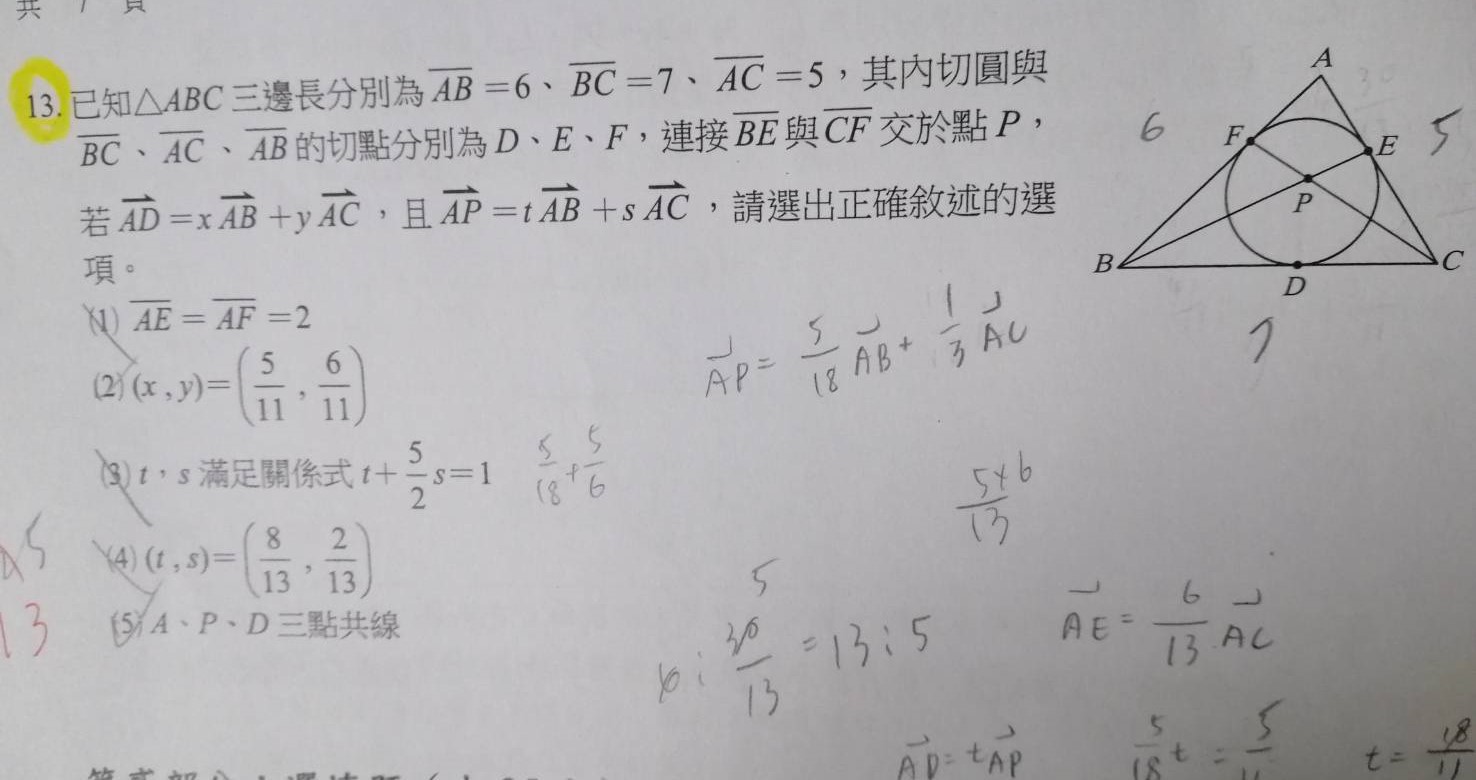 共 7 頁
13. 已知△ABC 三邊長分別為 AB = 6、BC = 7、AC = 5，其內切圓與
BC、AC、AB 的切點分別為 D、E、F，連接 BE 與 CF 交於點 P，
若 AD = x AB + y AC，且 AP = t AB + s AC，請選出正確敘述的選
項。
(1) AE = AF = 2
(2) (x , y) = (5/11 , 6/11)
(3) t，s 滿足關係式 t + 5/2 s = 1
(4) (t , s) = (8/13 , 2/13)
(5) A、P、D 三點共線
A
F
E
P
B
C
D
6
5
7
AP = 5/18 AB + 1/3 AC
5/18 + 5/6
5×6/13
6 : 30/13 = 13 : 5
5
AE = 6/13 AC
AD = t AP
5/18 t = 5/11
t = 18/11
13